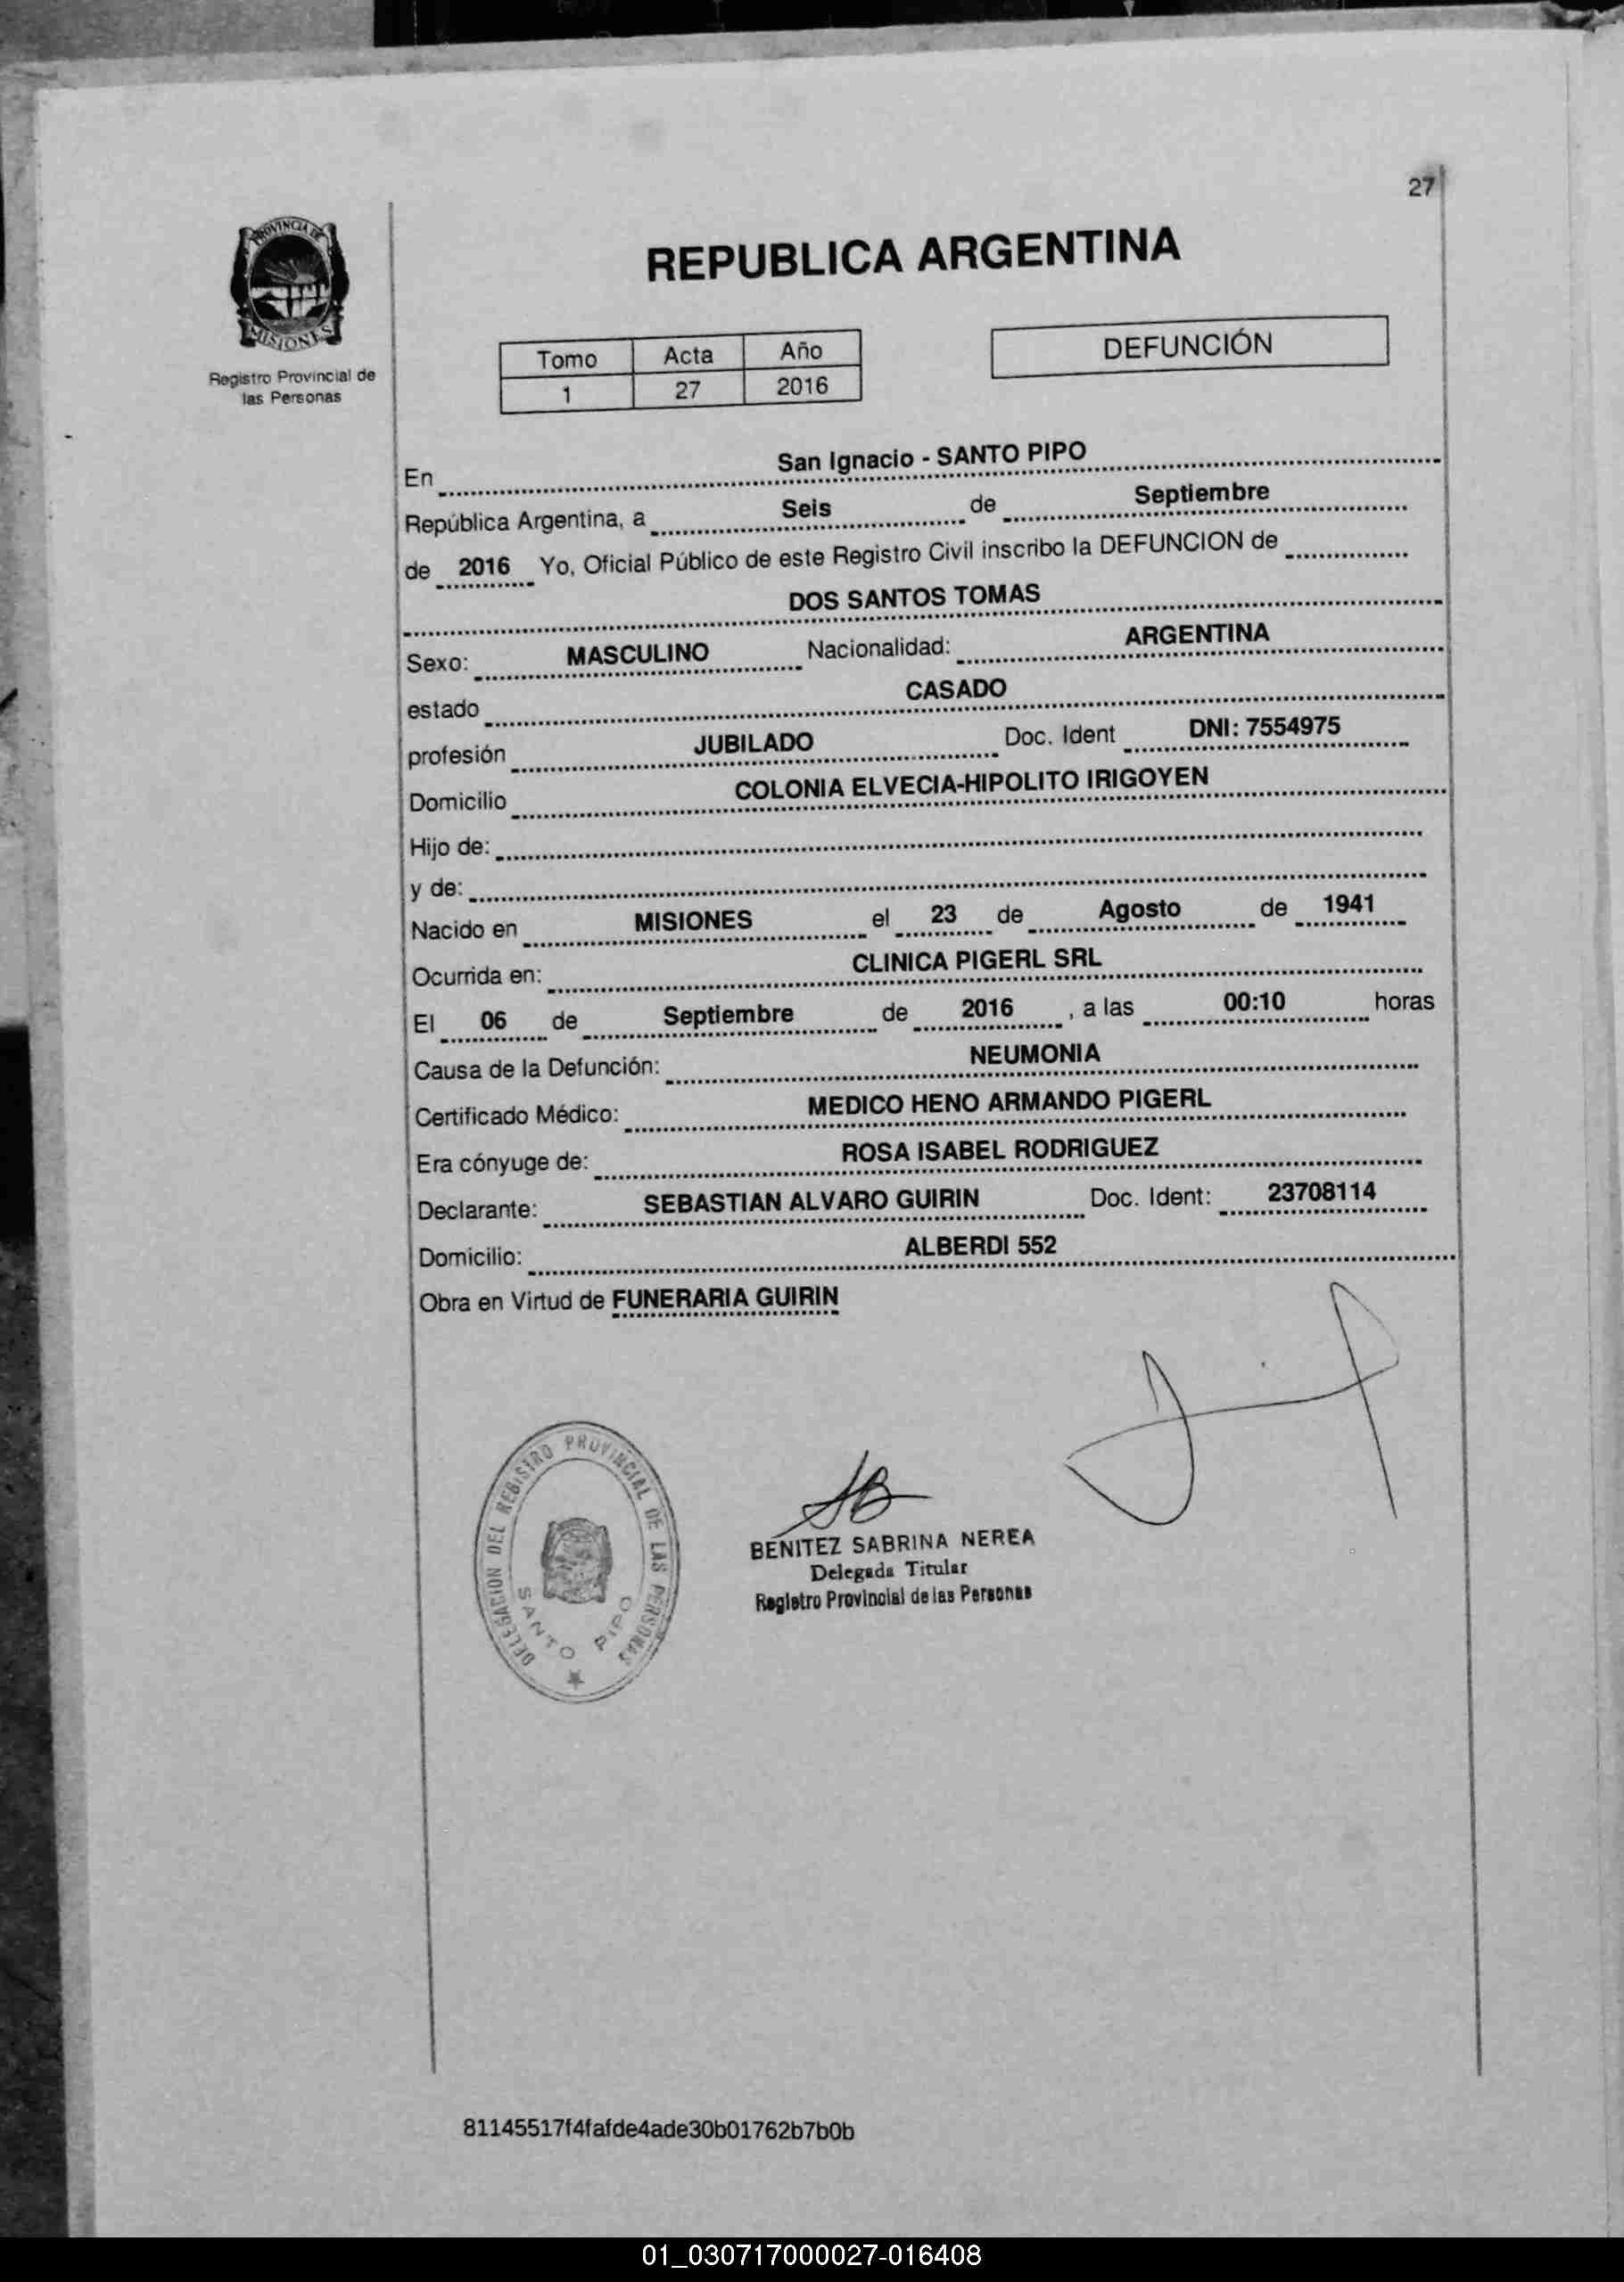 27
PROVINCIA DE
MISIONES
Registro Provincial de
las Personas
REPUBLICA ARGENTINA
Tomo Acta Año
1 27 2016
DEFUNCIÓN
En San Ignacio - SANTO PIPO
República Argentina, a Seis de Septiembre
de 2016 Yo, Oficial Público de este Registro Civil inscribo la DEFUNCION de
DOS SANTOS TOMAS
Sexo: MASCULINO Nacionalidad: ARGENTINA
estado CASADO
profesión JUBILADO Doc. Ident DNI: 7554975
Domicilio COLONIA ELVECIA-HIPOLITO IRIGOYEN
Hijo de:
y de:
Nacido en MISIONES el 23 de Agosto de 1941
Ocurrida en: CLINICA PIGERL SRL
El 06 de Septiembre de 2016 , a las 00:10 horas
Causa de la Defunción: NEUMONIA
Certificado Médico: MEDICO HENO ARMANDO PIGERL
Era cónyuge de: ROSA ISABEL RODRIGUEZ
Declarante: SEBASTIAN ALVARO GUIRIN Doc. Ident: 23708114
Domicilio: ALBERDI 552
Obra en Virtud de FUNERARIA GUIRIN
DELEGACION DEL REGISTRO PROVINCIAL DE LAS PERSONAS
SANTO PIPO
BENITEZ SABRINA NEREA
Delegada Titular
Registro Provincial de las Personas
81145517f4fafde4ade30b01762b7b0b
01_030717000027-016408